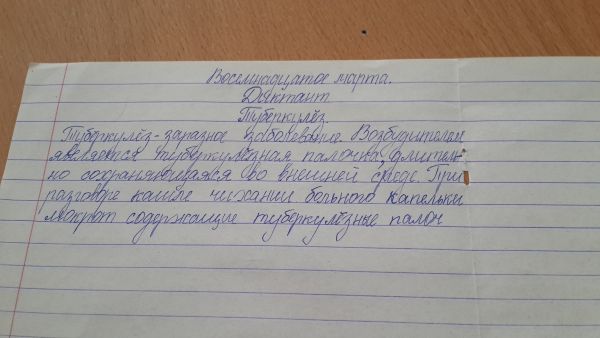 Восемнадцатое марта.
Диктант
Туберкулёз.
Туберкулёз-заразное заболевание Возбудителем
является туберкулёзная палочка, длитель-
но сохраняющаяся во внешней среде. При
разговоре кашле чихании больного капельки
мокрот содержащие туберкулёзные палоч